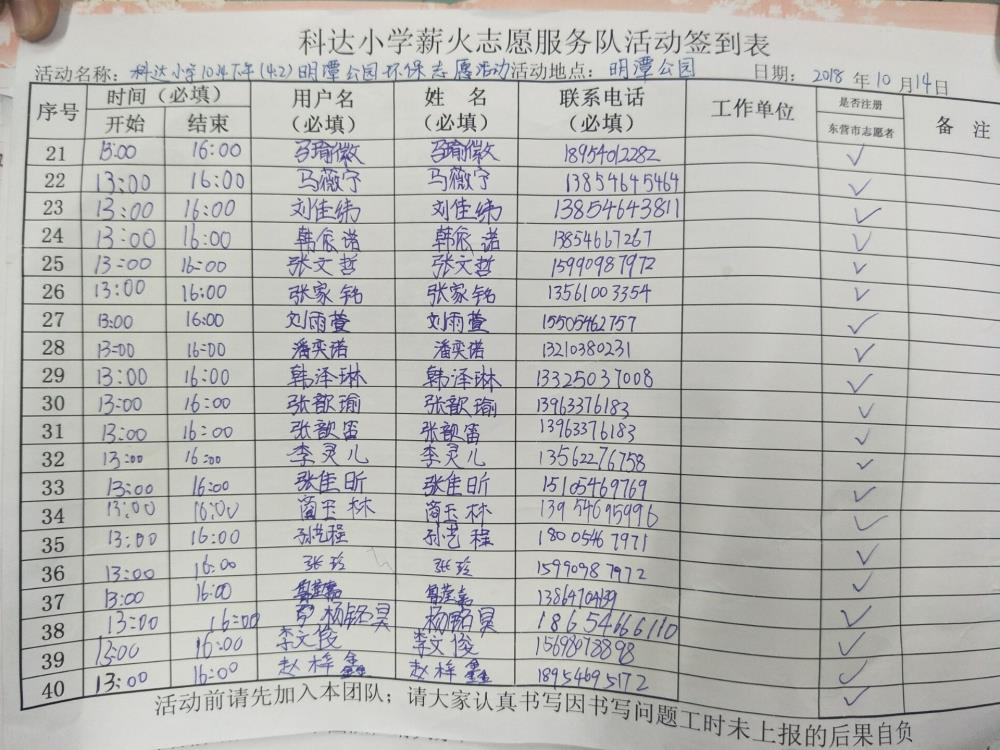 科达小学薪火志愿服务队活动签到表
活动名称：科达小学10月下午(4.2)明潭公园环保志愿活动 活动地点：明潭公园 日期：2018年10月14日
序号 时间（必填） 用户名（必填） 姓 名（必填） 联系电话（必填） 工作单位 是否注册东营市志愿者 备 注
开始 结束
21 13:00 16:00 马瑜徽 马瑜徽 18954012282 ✓
22 13:00 16:00 马薇宁 马薇宁 13854645464 ✓
23 13:00 16:00 刘佳纬 刘佳纬 13854643811 ✓
24 13:00 16:00 韩依诺 韩依诺 13854667267 ✓
25 13:00 16:00 张文哲 张文哲 15990987972 ✓
26 13:00 16:00 张家铭 张家铭 13561003354 ✓
27 13:00 16:00 刘雨萱 刘雨萱 15505462757 ✓
28 13:00 16:00 潘奕诺 潘奕诺 13210380231 ✓
29 13:00 16:00 韩泽琳 韩泽琳 13325037008 ✓
30 13:00 16:00 张歆瑜 张歆瑜 13963376183 ✓
31 13:00 16:00 张歆笛 张歆笛 13963376183 ✓
32 13:00 16:00 李灵儿 李灵儿 13562276758 ✓
33 13:00 16:00 张佳昕 张佳昕 15105469769 ✓
34 13:00 16:00 蔺玉林 蔺玉林 13954695996 ✓
35 13:00 16:00 孙艺程 孙艺程 18005467971 ✓
36 13:00 16:00 张玲 张玲 15990987972 ✓
37 13:00 16:00 ✓
38 13:00 16:00 杨铭昊 杨铭昊 18654666110 ✓
39 13:00 16:00 李文俊 李文俊 15698078898 ✓
40 13:00 16:00 赵梓鑫 赵梓鑫 18954695172 ✓
活动前请先加入本团队；请大家认真书写因书写问题工时未上报的后果自负